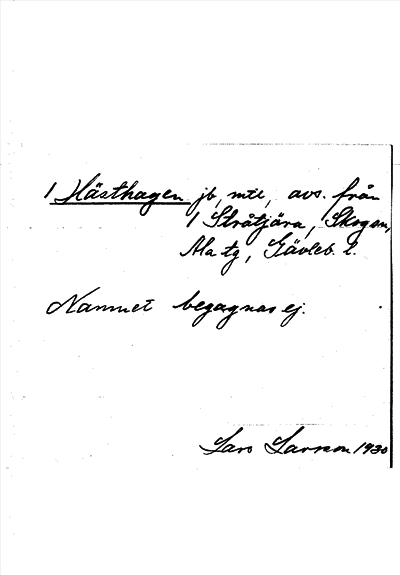 1 Hästhagen jb, mtl, avs. från
1 Stråtjära, Skogen,
Ala tg, Gävleb. l.
Namnet begagnas ej.
Lars Larsson 1930